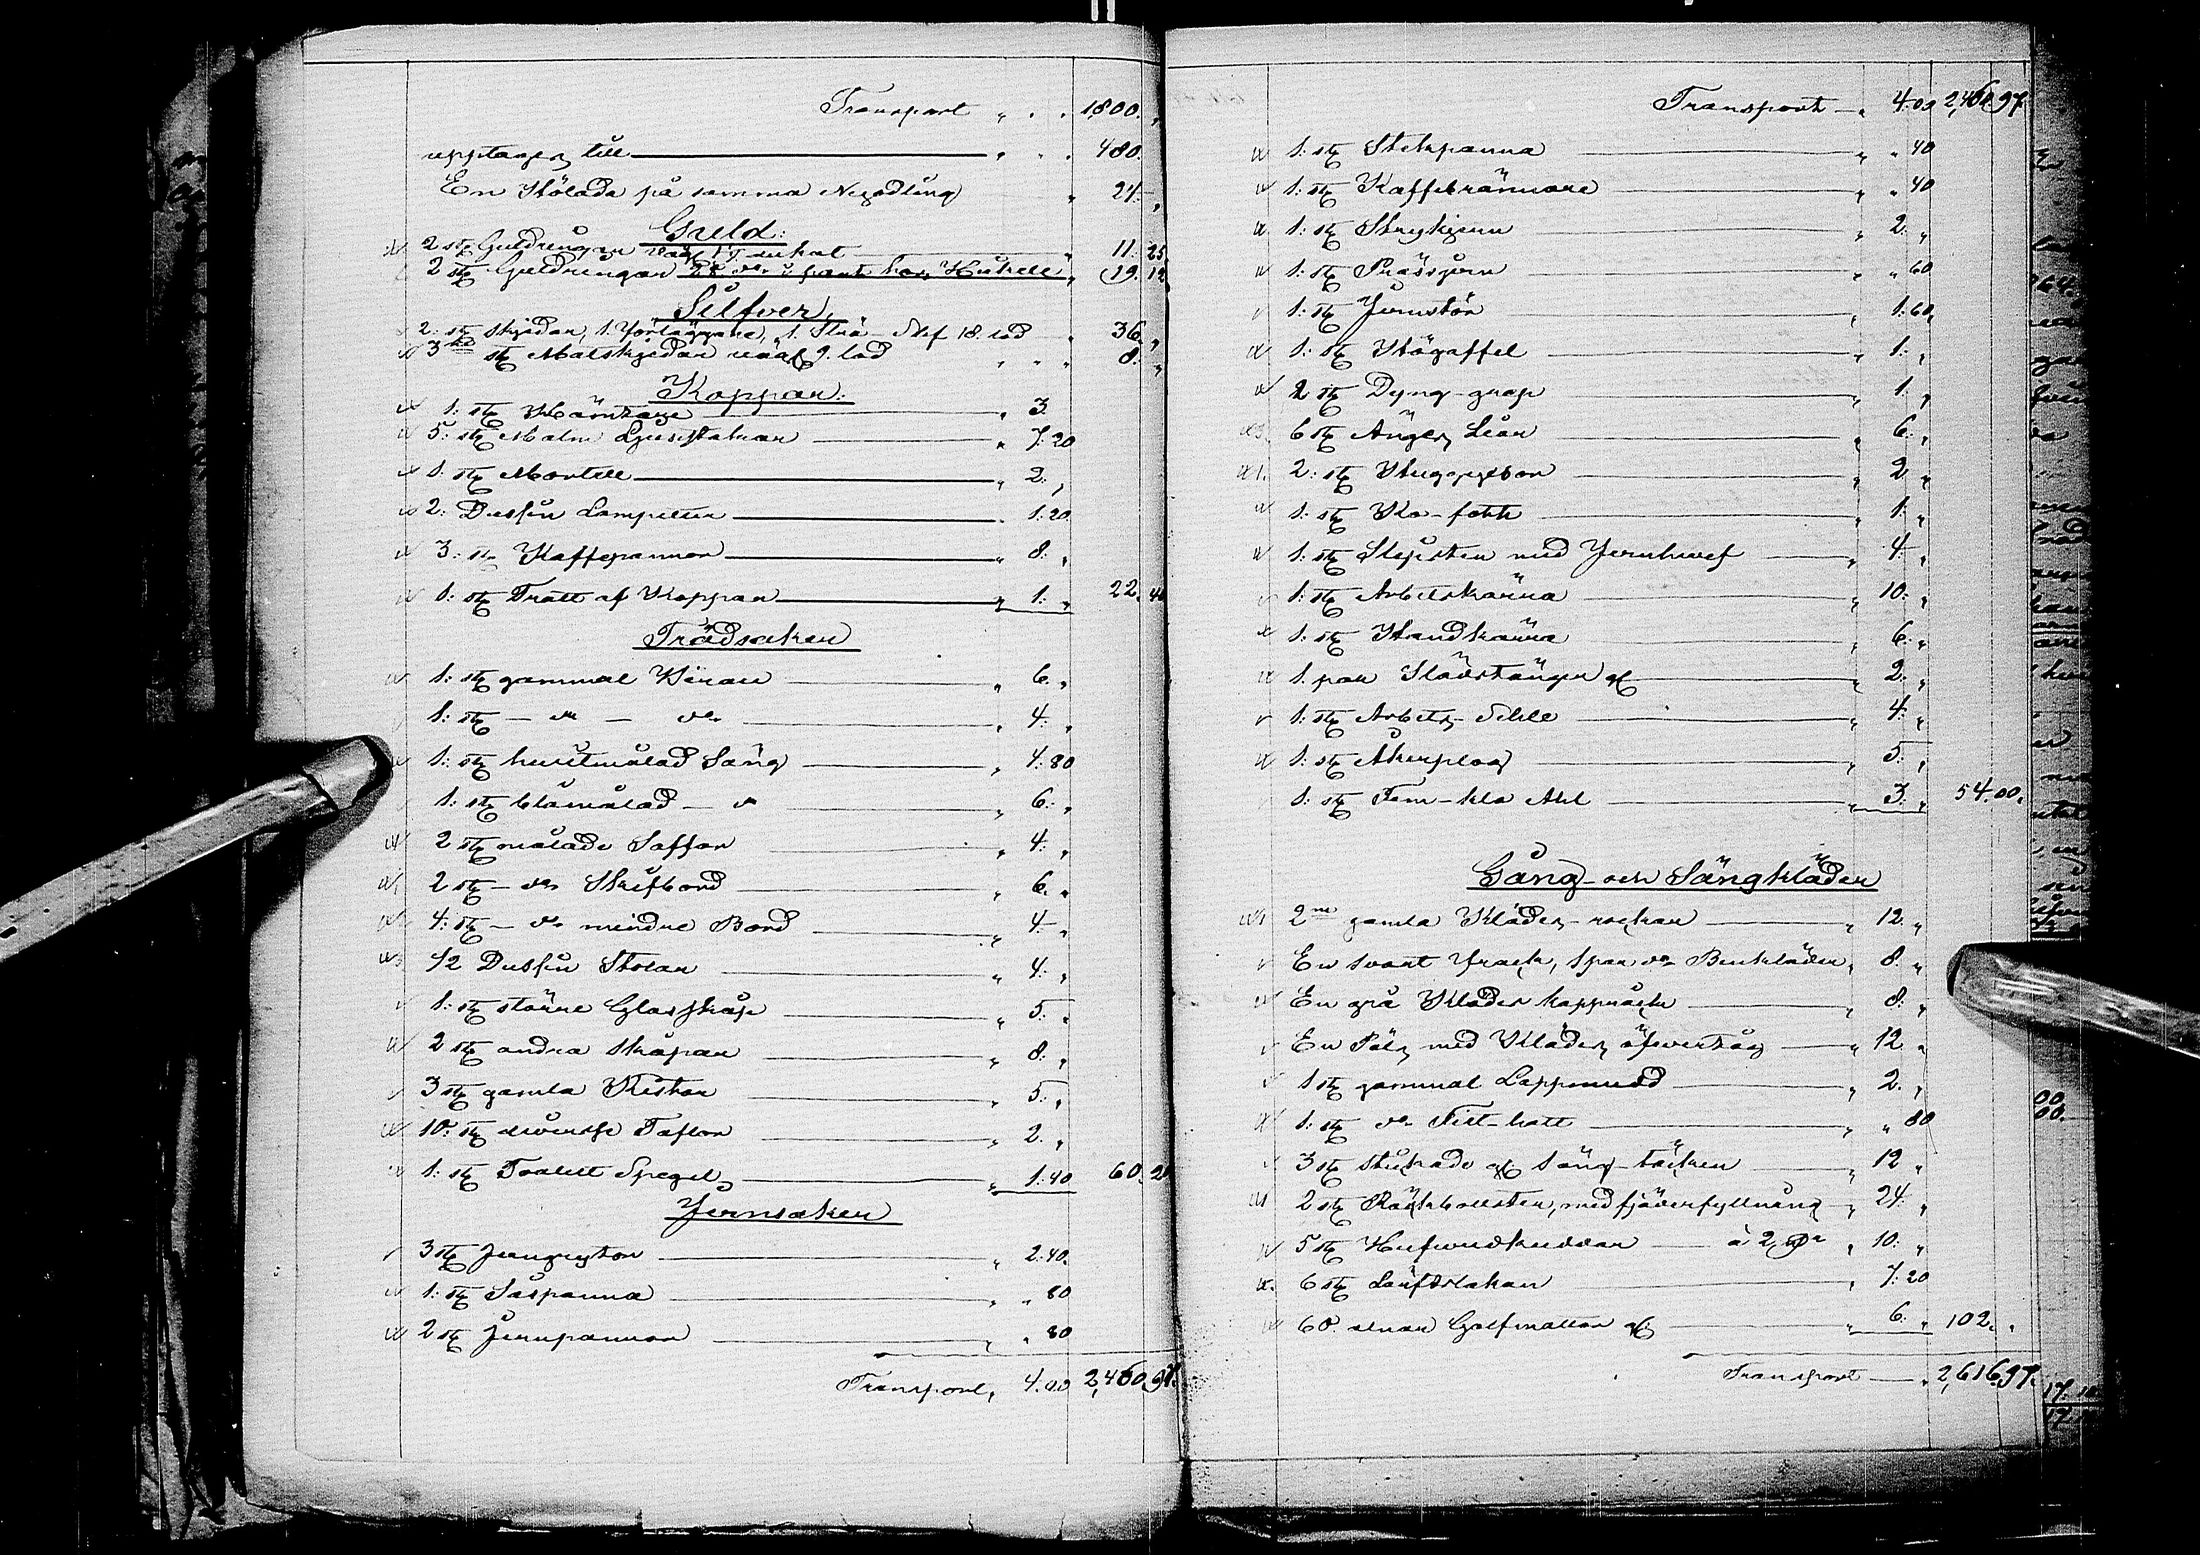 Transport " . . 1,800. "
upptages till " " . 480.
En Hölada på samma Negodling " 24. "
Guld:
2 stg Guldringar väg 1 Dukat 11. 25
2 stg Guldringar 2 do i pant hos " 19. 12
Silfver.
2. stg skjedar, 1 Förläggare, 1 Strö-Skf 18 lod 36. "
3 stg Matskjedar väg 9. lod " " . 8. "
Koppar:
1: stg " 3.
5: stg Malm Ljusstakar " 7: 20
1. stg Mortell " 2: "
2: Dussin Lampetter . 1: 20
3: st. Kaffepannor " 8: "
1. stg Tratt af Koppar " 1: " 22. 40
Trädsaker
1: stg gammal Byrau " 6. "
1: stg - do - do " 4: "
1: stg hvitmålad Säng " 4: 80
1: stg blåmålad - do " 6: "
2 stg målade Soffor " 4: "
2 stg - do Skrifbord " 6. "
4: stg - do mindre Bord " 4- "
1/2 Dussin Stolar " 4: "
1: stg större Glasskåp " 5: "
2 stg andra skåpar " 8. "
3 stg gamla Kistor " 5: "
10: stg diverse Taflor " 2. "
1: stg Toalett Spegel " 1: 40 60. 20
Jernsaker
3 stg Jerngrytor " 2: 40.
1: stg Såspanna " " 80
2 stg Jernpannor " " 80
Transport, 4. 00 2,460. 97.
Transport " 4. 00 2,460. 97.
1: stg Stekpanna " " 40
1: stg Kaffebrännare " " 40
1: stg Strykjern " 2: "
1: stg Prässjern " " 60
1: stg Jernstör " 1: 60,
1: stg Högaffel " 1: "
2 stg Dyng-grep " 1: "
6 stg Ängs Liar " 6: "
2: stg Huggyxor " 2 "
1: stg Ko-fott " 1: "
1: stg Slipsten med Jernhvef " 4: "
1: stg Arbetskärra " 10: "
1: stg Handkärra " 6: "
1. par Slädstänger af " 2: "
1: stg Arbets-Sehle " 4: "
1: stg Åkerplog " 5: "
1: stg Fem-klo Ahl " 3: " 54. 00.
Gång- och Sängkläder
2ne gamla Kläder-rockar " 12. "
En svart Frack, 1 par do Benkläder, 8: "
En grå Kläder kapprock " 8: "
En Päls med Klädes öfvertåg " 12. "
1 stg gammal Lappmudd " 2. "
1: stg do Filt-hatt " " 80
3 stg stickade af säng-täcken " 12 "
2 stg Räckbolster, med fjäderfyllning " 24. "
5 stg Hufvudkuddar à 2 " 10: "
6 stg Lärftslakan " 7: 20
60. alnar Golfmattor af " 6: " 102. "
Transport " 2,616. 97.